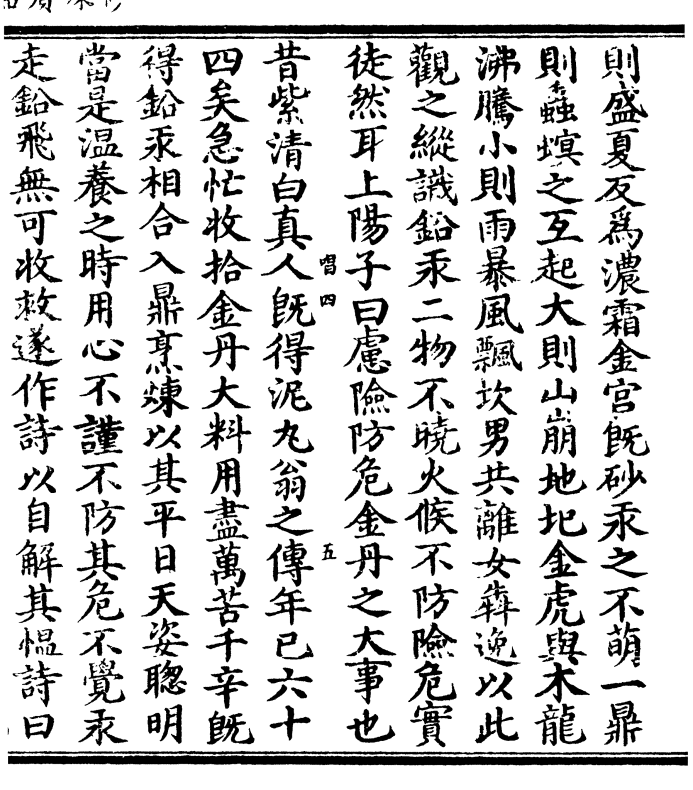 則盛夏反爲濃霜金宮旣砂汞之不萌一鼎
則蟲螟之互起大則山崩地圯金虎與木龍
沸騰小則雨暴風飄坎男共離女奔逸以此
觀之縱識鉛汞二物不曉火候不防險危實
徒然耳上陽子曰慮險防危金丹之大事也
昔紫清白真人旣得泥丸翁之傳年已六十
唱四
五
四矣急忙收拾金丹大料用盡萬苦千辛旣
得鉛汞相合入鼎烹煉以其平日天姿聰明
當是温養之時用心不謹不防其危不覺汞
走鉛飛無可收救遂作詩以自解其愠詩曰